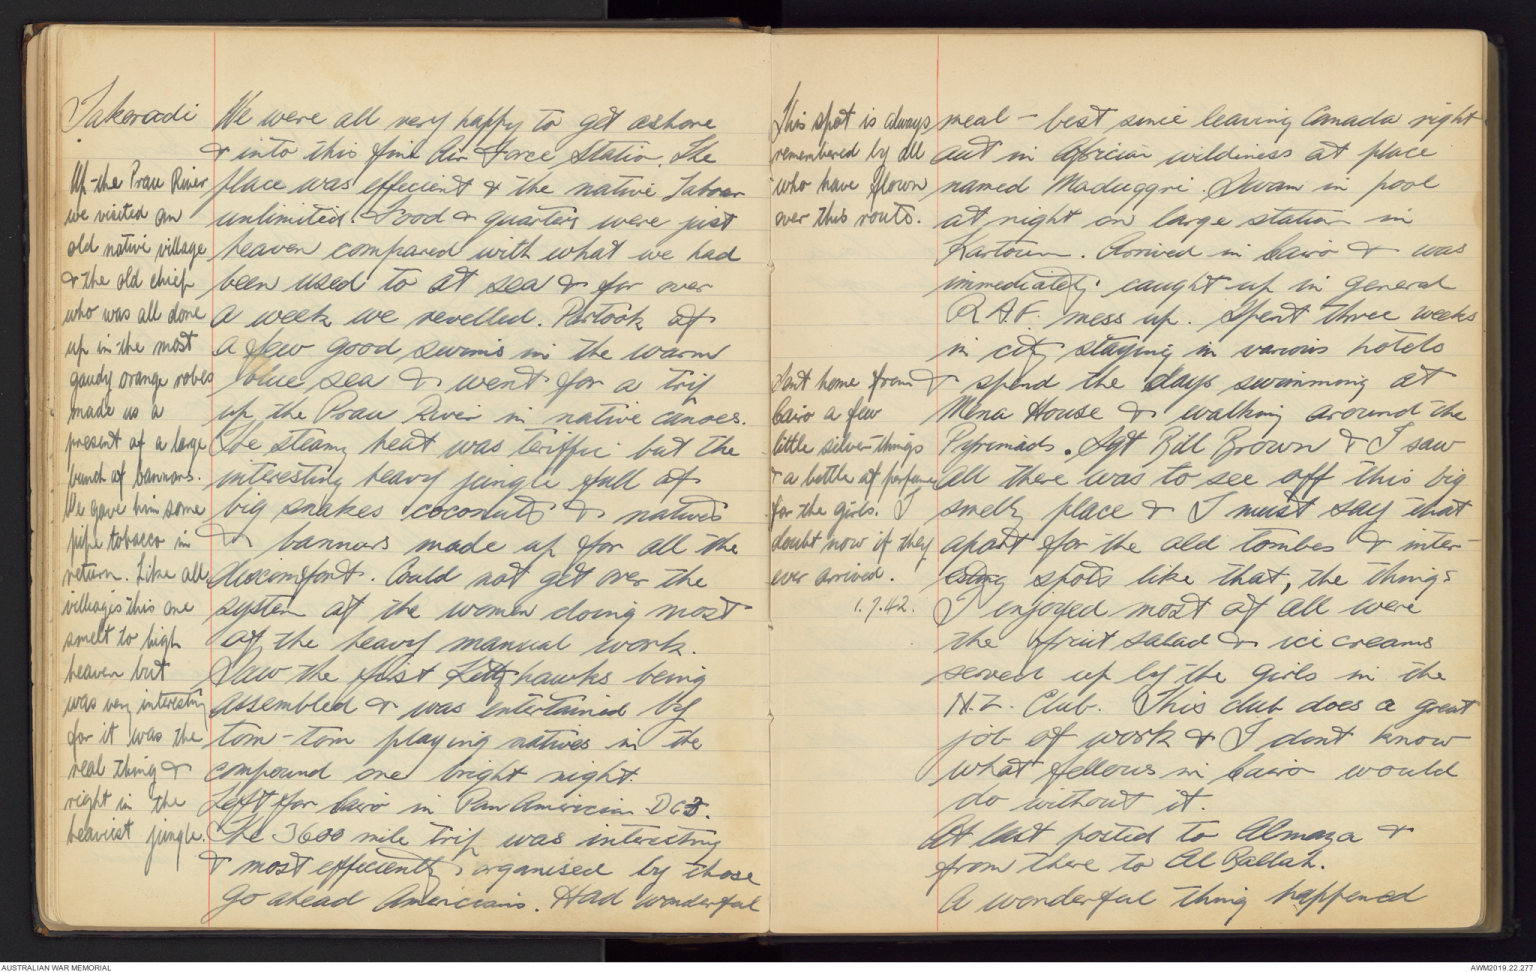 Takoradi
Up-the Prau River
we visited an
old native village
& the old chief
who was all done
up in the most
gaudy orange robes
made us a
present of a large
bunch of bannanas.
We gave him some
pipe tobacco in
return. Like all
villages this one
smelt to high
heaven but
was very interesting
for it was the
real thing &
right in the
heaviest jungle.
We were all very happy to get ashore
& into this fine Air Force Station. The
place was efficient & the native Labour
unlimited. Food & quarters were just
heaven compared with what we had
been used to at sea & for over
a week we revelled. Partook of
a few good swims in the warm
blue sea & went for a trip
up the Prau River in native canoes.
The steamy heat was teriffic but the
interesting heavy jungle full of
big snakes coconuts & natives
& bannans made up for all the
discomfort. Could not get over the
system of the women doing most
of the heavy manual work.
Saw the first Kittyhawks being
assembled & was entertained by
tom-tom playing natives in the
compound one bright night.
Left for Cairo in Pan American DC3.
The 3600 mile trip was interesting
& most efficiently organised by those
go ahead Americians. Had wonderful
This spot is always
remembered by all
who have flown
over this route.
Sent home from
Cairo a few
little silver things
& a bottle of perfume
for the girls. I
doubt now if they
ever arrived.
1.7.42.
meal - best since leaving Canada right
out in African wildiness at place
named Maduggri. Swam in pool
at night on large station in
Kartoum. Arrived in Cairo & was
immediately caught up in general
R.A.F. mess up. Spent three weeks
in city staying in various hotels
& spend the days swimming at
Mena House & walking around the
Pyrimads. Sgt Bill Brown & I saw
all there was to see off this big
smelly place & I must say that
apart for the old tombes & inter-
esting spots like that, the things
I enjoyed most of all were
the fruit salad & ice creams
served up by the girls in the
N.Z. Club. This club does a great
job of work & I dont know
what fellows in Cairo would
do without it.
At last posted to Almaza &
from there to Al Ballah.
A wonderful thing happened
AUSTRALIAN WAR MEMORIAL
AWM2019.22.277